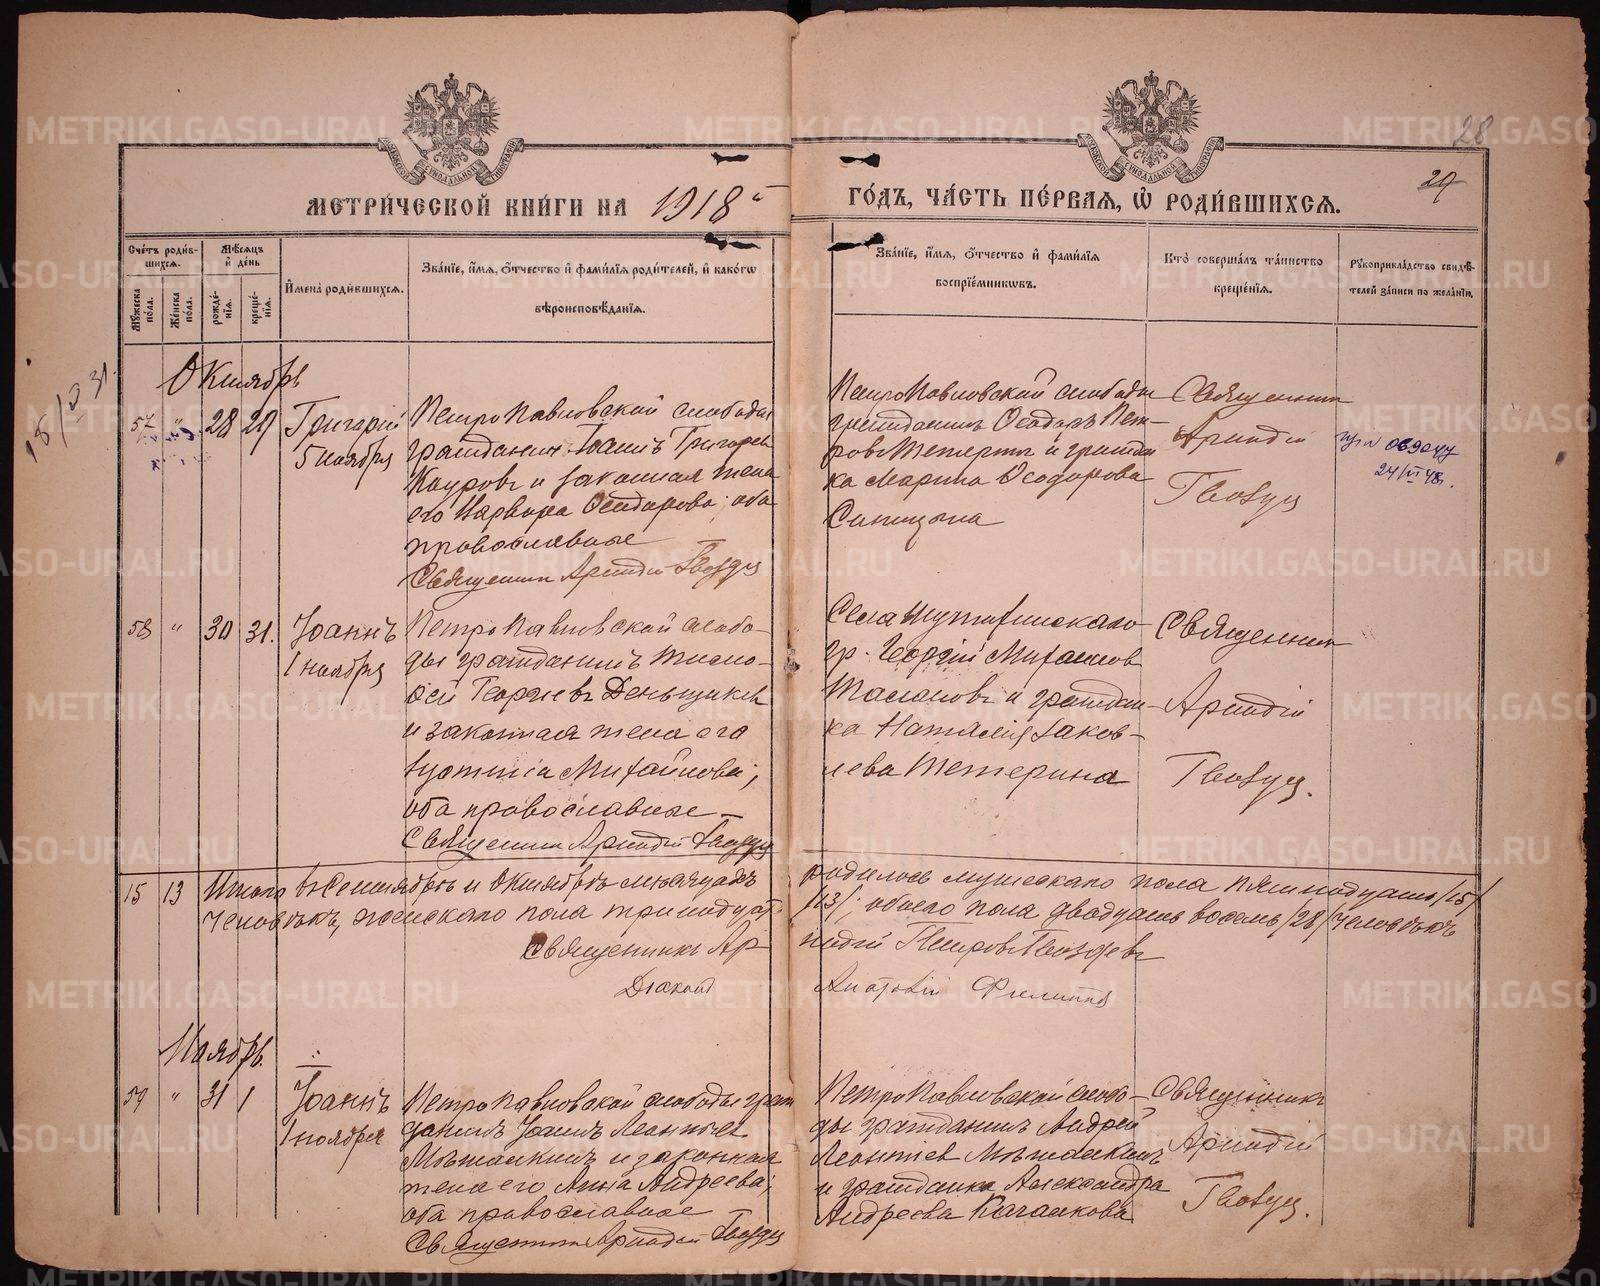 МЕТРИ́ЧЕСКОЙ КНИ́ГИ НА 1918 й
ГО́ДЪ, ЧА́СТЬ ПЕ́РВАЯ, Ѡ РОДИ́ВШИХСЯ.
28
29
Сче́тъ роди́в-
шихся.
Мѣ́сяцъ
и҆ де́нь
Му́жеска по́ла.
Же́нска по́ла.
рожде́-
нїѧ.
креще́-
нїѧ.
И҆мена̀ роди́вшихся.
Зва́нїе, и҆́мя, ѻ҆́тчество и҆ фами́лїя роди́телей, и҆ како́гѡ
вѣроисповѣ́данїя.
Зва́нїе, и҆́мя, ѻ҆́тчество и҆ фами́лїя
воспрїе́мникѡвъ.
Кто̀ соверша́лъ та́инство
креще́нїя.
Рꙋкоприкла́дство свидѣ́-
телей за́писи по жела́нїю.
Октябрь
57 " 28 29
Григорій
5 ноября
Петропавловской слободы
гражданинъ Іоаннъ Григорьев
Кауровъ и законная жена
его Варвара Феодорова; оба
православные
Священник Аркадій Гвоздев
Петропавловской слободы
гражданинъ Феодоръ Пет-
ровъ Тетеринъ и граждан
ка Марина Феодорова
Синицына
Священник
Аркадій
Гвоздев
24/VI 48г.
58 " 30 31.
Іоаннъ
1 ноября
Петропавловской слобо-
ды гражданинъ Тимо-
фей Георгіевъ Деньщиков
и законная жена его
Іустинія Михайлова;
оба православные
Священник Аркадій Гвоздев
Села
гр. Георгій Михаилов
и граждан-
ка Наталія Іаков-
лева Тетерина
Священник
Аркадій
Гвоздев.
15 13 Итого въ Сентябрѣ и Октябрѣ мѣсяцахъ
родилось мужескаго пола пятнадцать /15/
человѣкъ, женскаго пола тринадцать
/13/; обоего пола двадцать восемь /28/ человѣкъ
Священникъ Аркадій Петровъ Гвоздевъ
Діаконъ
Ноябрь.
59 " 31 1
Іоаннъ
1 ноября
Петропавловской слободы граж
данинъ Іоаннъ Леонтьев
и законная
жена его Анна Андреева;
оба православные
Священник Аркадій Гвоздев
Петропавловской слобо-
ды гражданинъ Андрей
Леонтіев
и гражданка Александра
Андреева
Священникъ
Аркадій
Гвоздев.
METRIKI.GASO-URAL.RU